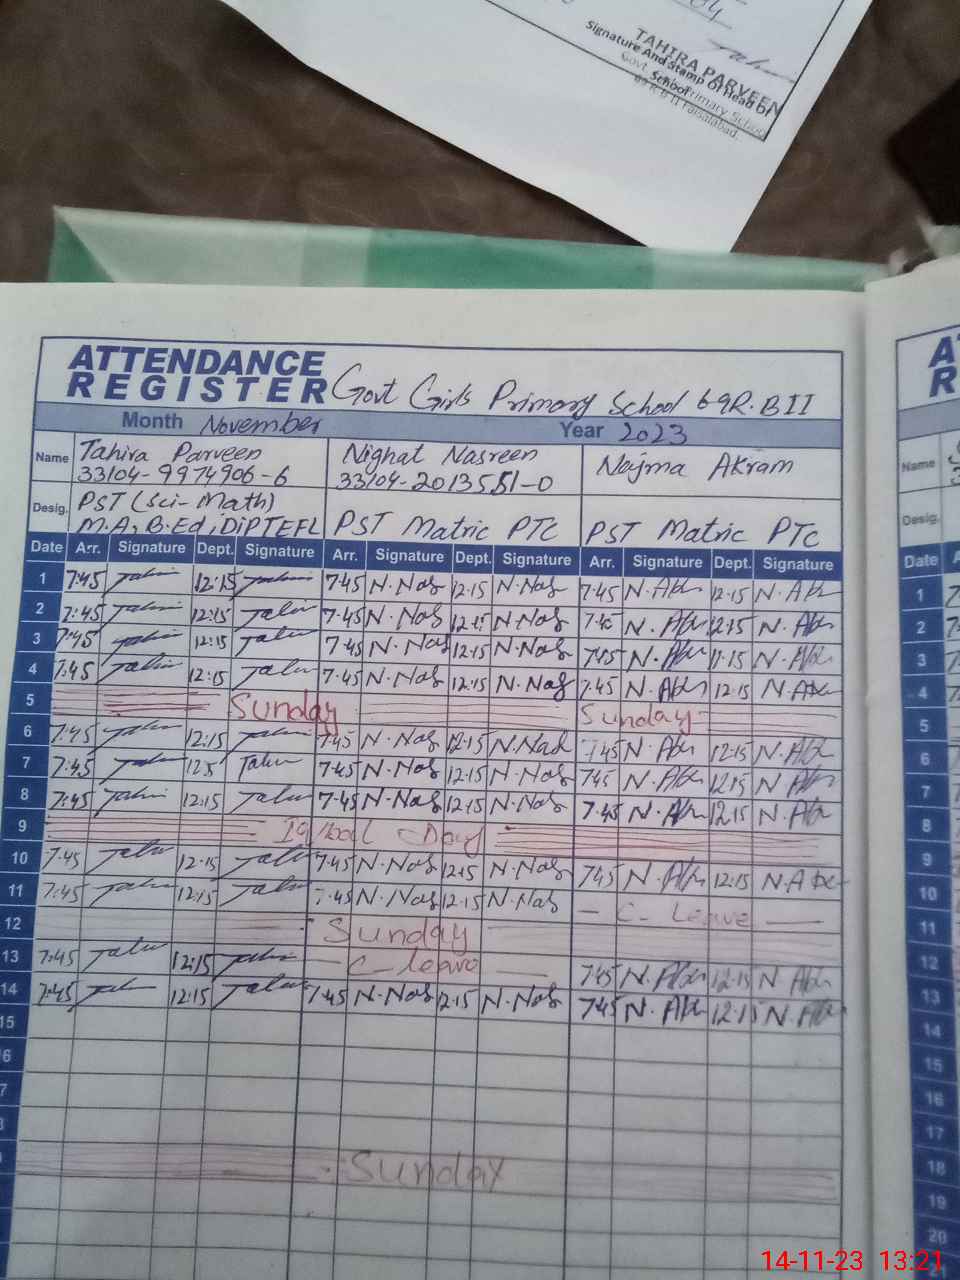 TAHIRA PARVEEN
Signature And Stamp Of Head Of
School
Primary School
Faisalabad.
ATTENDANCE
REGISTER
Govt Girls Primary School 69R.BII
Month November Year 2023
Name Tahira Parveen Nighat Nasreen Najma Akram
33104-9974906-6 33104-2013551-0
Desig. PST (Sci-Math)
M.A, B.Ed, DiPTEFL PST Matric PTC PST Matric PTC
Date Arr. Signature Dept. Signature Arr. Signature Dept. Signature Arr. Signature Dept. Signature
1 7:45 12:15 7.45 N.Nas 12.15 N.Nas 7.45 N.Akr 12.15 N.Akr
2 7:45 12:15 7.45 N.Nas 12.15 N.Nas 7.45 N.Akr 12.15 N.Akr
3 7:45 12:15 7.45 N.Nas 12.15 N.Nas 7.45 N.Akr 12.15 N.Akr
4 7:45 12:15 7.45 N.Nas 12.15 N.Nas 7.45 N.Akr 12.15 N.Akr
5 Sunday Sunday
6 7:45 12:15 7.45 N.Nas 12.15 N.Nas 7.45 N.Akr 12.15 N.Akr
7 7:45 7.45 N.Nas 12.15 N.Nas 7.45 N.Akr 12.15 N.Akr
8 7:45 12:15 7.45 N.Nas 12.15 N.Nas 7.45 N.Akr 12.15 N.Akr
9 Iqbal Day
10 7.45 12:15 7.45 N.Nas 12.15 N.Nas 7.45 N.Akr 12.15 N.Akr
11 7:45 12:15 7.45 N.Nas 12.15 N.Nas - C- Leave -
12 Sunday
13 7:45 12:15 - C-leave - 7.45 N.Akr 12.15 N.Akr
14 7:45 12:15 7.45 N.Nas 12.15 N.Nas 7.45 N.Akr 12.15 N.Akr
15
Sunday
Name
Desig.
Date
1
2
3
4
5
6
7
8
9
10
11
12
13
14
15
16
17
18
19
20
14-11-23 13:21